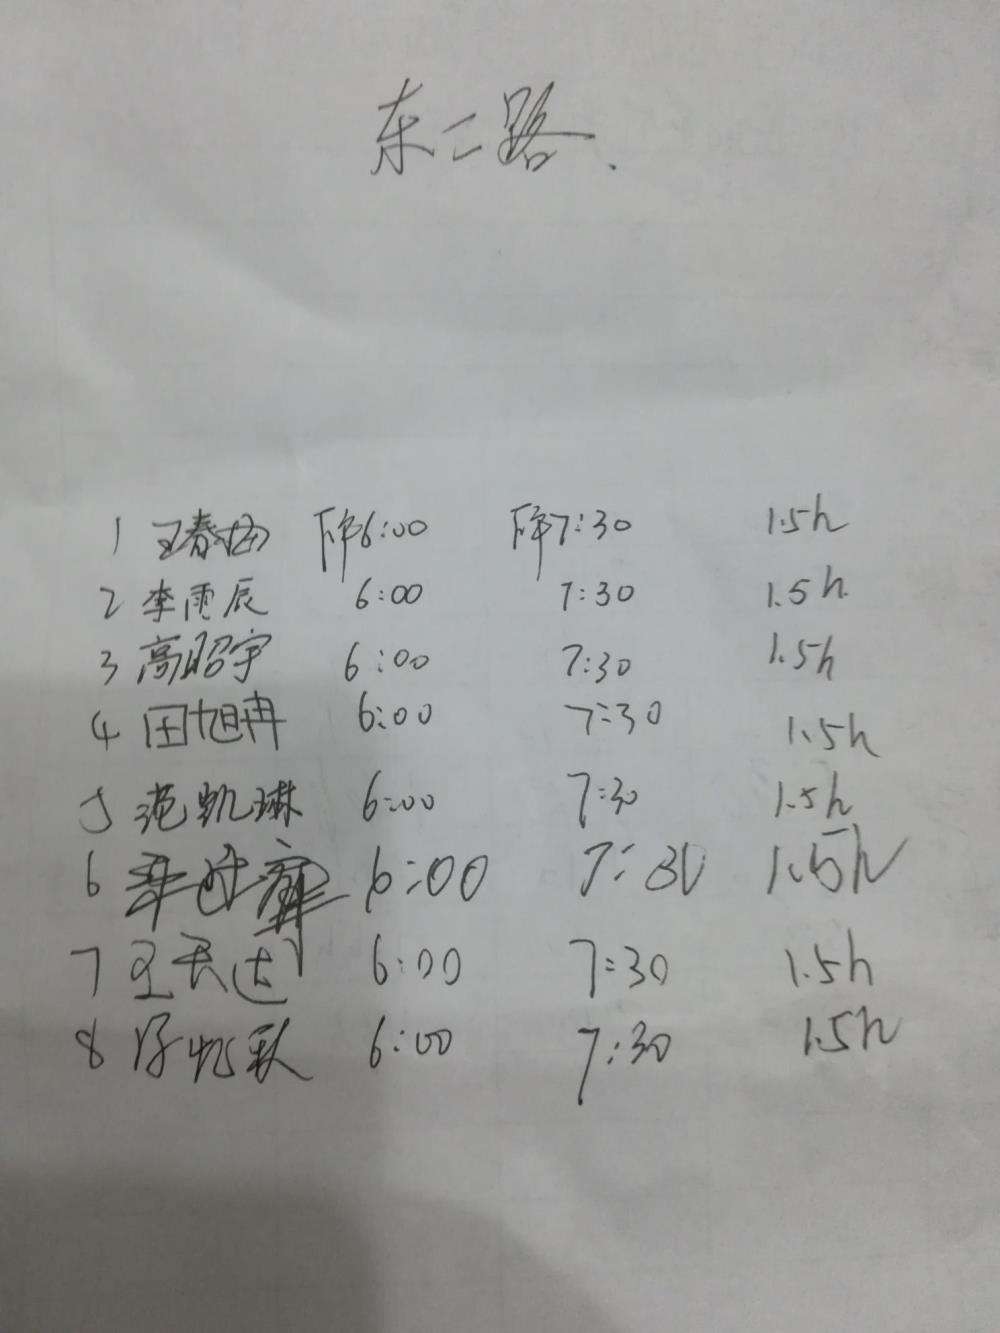 东二路.
1 王春梅 下午6:00 下午7:30 1.5h
2 李雨辰 6:00 7:30 1.5h
3 高昭宇 6:00 7:30 1.5h
4 田旭冉 6:00 7:30 1.5h
5 范凯琳 6:00 7:30 1.5h
6 6:00 7:30 1.5h
7 王天达 6:00 7:30 1.5h
8 忆秋 6:00 7:30 1.5h